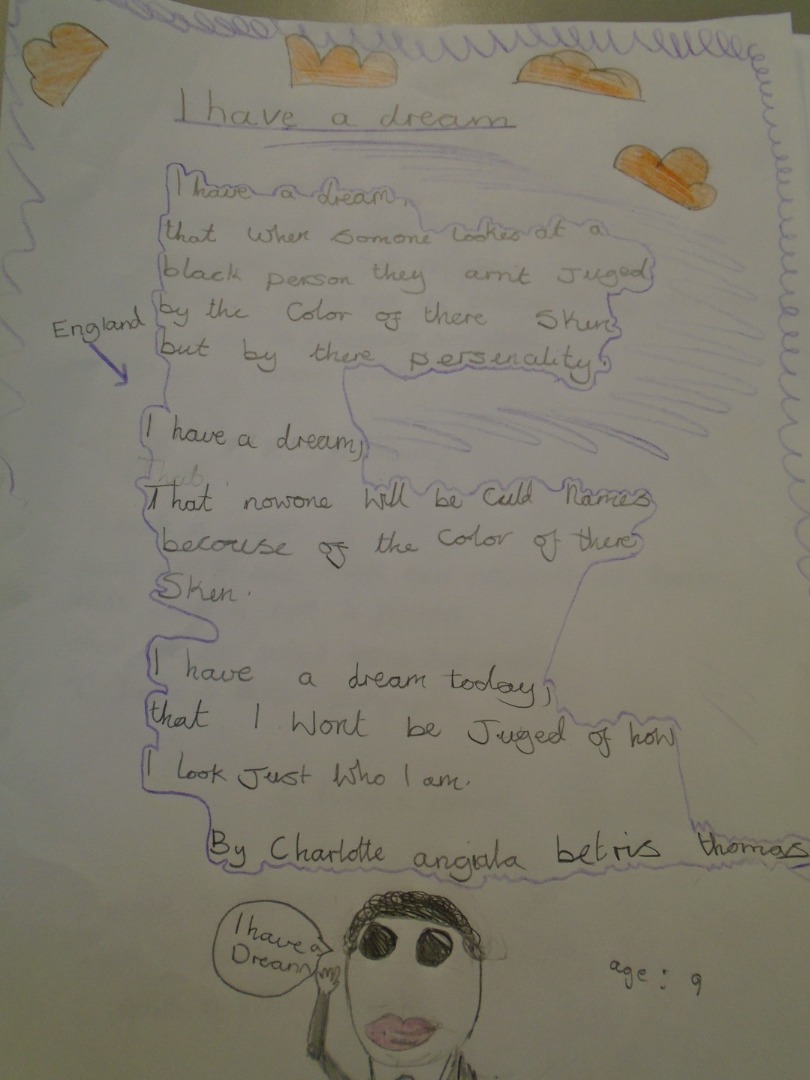 I have a dream
I have a dream,
that when somone lookes at a
black person they arn't Juged
by the Color of there Sken
England
but by there persenality.
I have a dream,
That nowone will be culd Names
becouse of the Color of there
Sken.
I have a dream today,
that I Wont be Juged of how
I look Just Who I am.
By Charlotte angiala betris thomas
I have a
Dream
age: 9